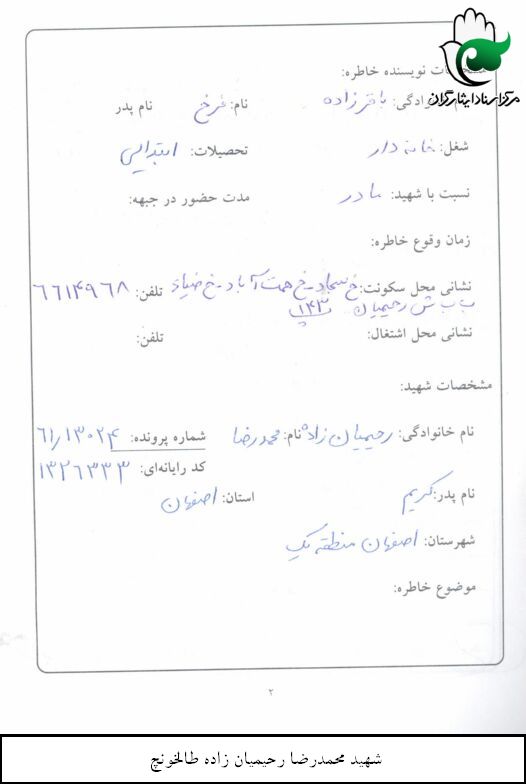 مرکز اسناد ایثارگران
مشخصات نویسنده خاطره:
نام خانوادگی: باقرزاده نام: فرخ نام پدر
شغل: خانه دار تحصیلات: ابتدایی
نسبت با شهید: مادر مدت حضور در جبهه:
زمان وقوع خاطره:
نشانی محل سکونت: خ سجاد - خ همت آباد - خ ضیاء تلفن: ۶۶۱۴۹۶۸
ب ب ش رحیمیان پ ۱۴۳
نشانی محل اشتغال: تلفن:
مشخصات شهید:
نام خانوادگی: رحیمیان زاده نام: محمدرضا شماره پرونده: ۶۱/۱۳۰۲۴
کد رایانه‌ای: ۱۳۲۶۳۳۳
نام پدر: کریم استان: اصفهان
شهرستان: اصفهان منطقه یک
موضوع خاطره:
۲
شهید محمدرضا رحیمیان زاده طالخونچ